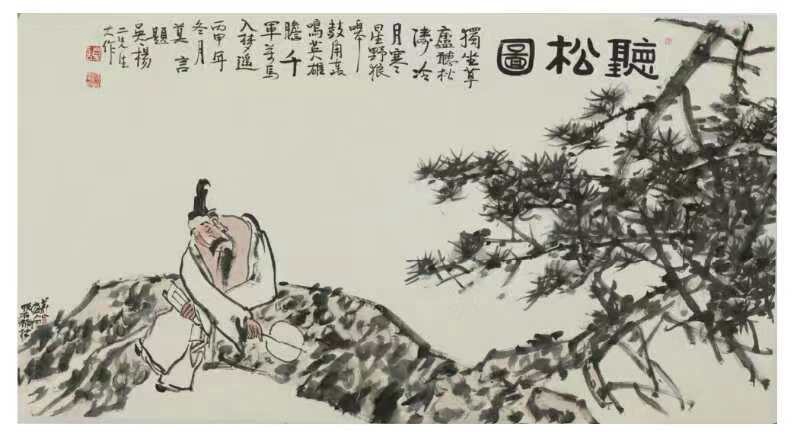 聽松圖
獨坐草
廬聽松
濤冷
月寒
星野狼
嗥
鼓角哀
鳴英雄
膽千
軍萬馬
入夢遙
丙申年
冬月
莫言
題
吳楊
二先生
大作